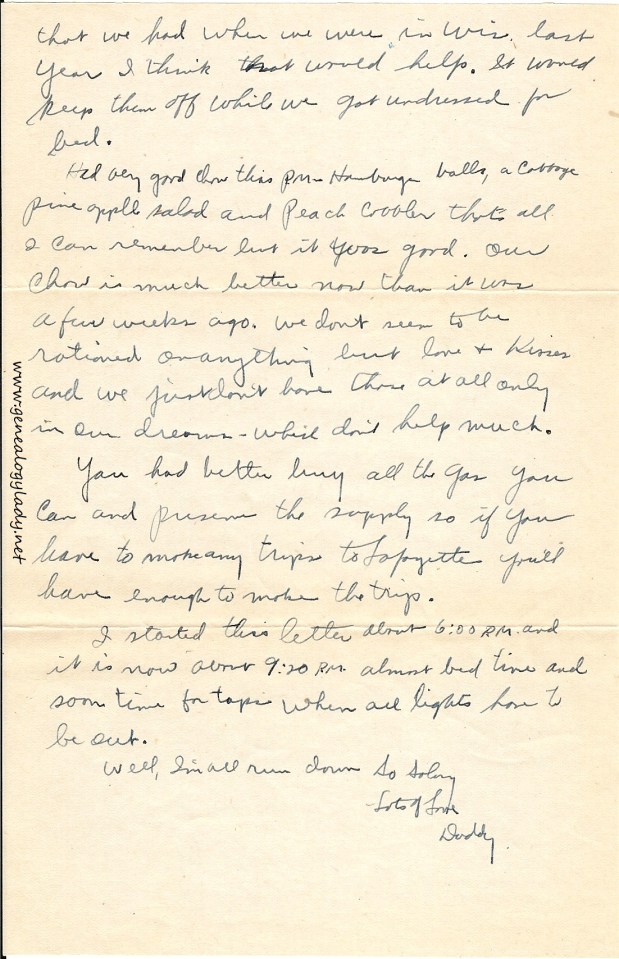 that we had when we were in Wis. last
year I think that would help. It would
keep them off while we got undressed for
bed.
Had very good chow this P.M. Hamburger balls, a Cottage
pine apple salad and Peach Cobbler thats all
I can remember but it was good. Our
Chow is much better now than it was
a few weeks ago. We don't seem to be
rationed on anything but love + Kisses
and we just don't have those at all only
in our dreams - which don't help much.
You had better buy all the Gas you
Can and preserve the supply so if you
have to make any trips to Lafayette you'll
have enough to make the trip.
I started this letter about 6:00 P.M. and
it is now about 9:20 P.M. almost bed time and
soon time for taps when all lights have to
be out.
Well, I'm all run down So Solong
Lots of Love
Daddy
www.genealogylady.net